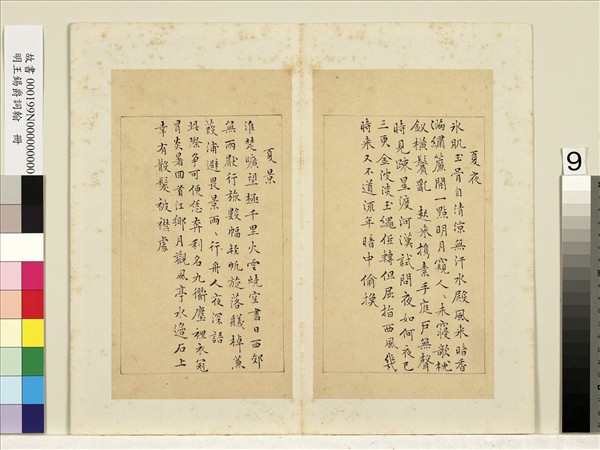 夏夜
冰肌玉骨自清涼無汗水殿風來暗香
滿繡簾開一點明月窺人〻未寢欹枕
釵橫鬢亂 起來攜素手庭戶無聲
時見疎星渡河漢試問夜如何夜已
三更金波淡玉繩低轉但屈指西風幾
時來又不道流年暗中偷換
夏景
淮楚曠望極千里火雲燒空晝日西郊
無雨厭行旅數幅輕帆旋落艤棹蒹
葭浦避畏景兩〻行舟人夜深語
此際爭可便恁奔利名九衢塵裡衣冠
冒炎暑回首江鄉月觀風亭水邊石上
幸有散髮披襟處
故書 000199N000000000
明王錫爵詞翰 冊
9